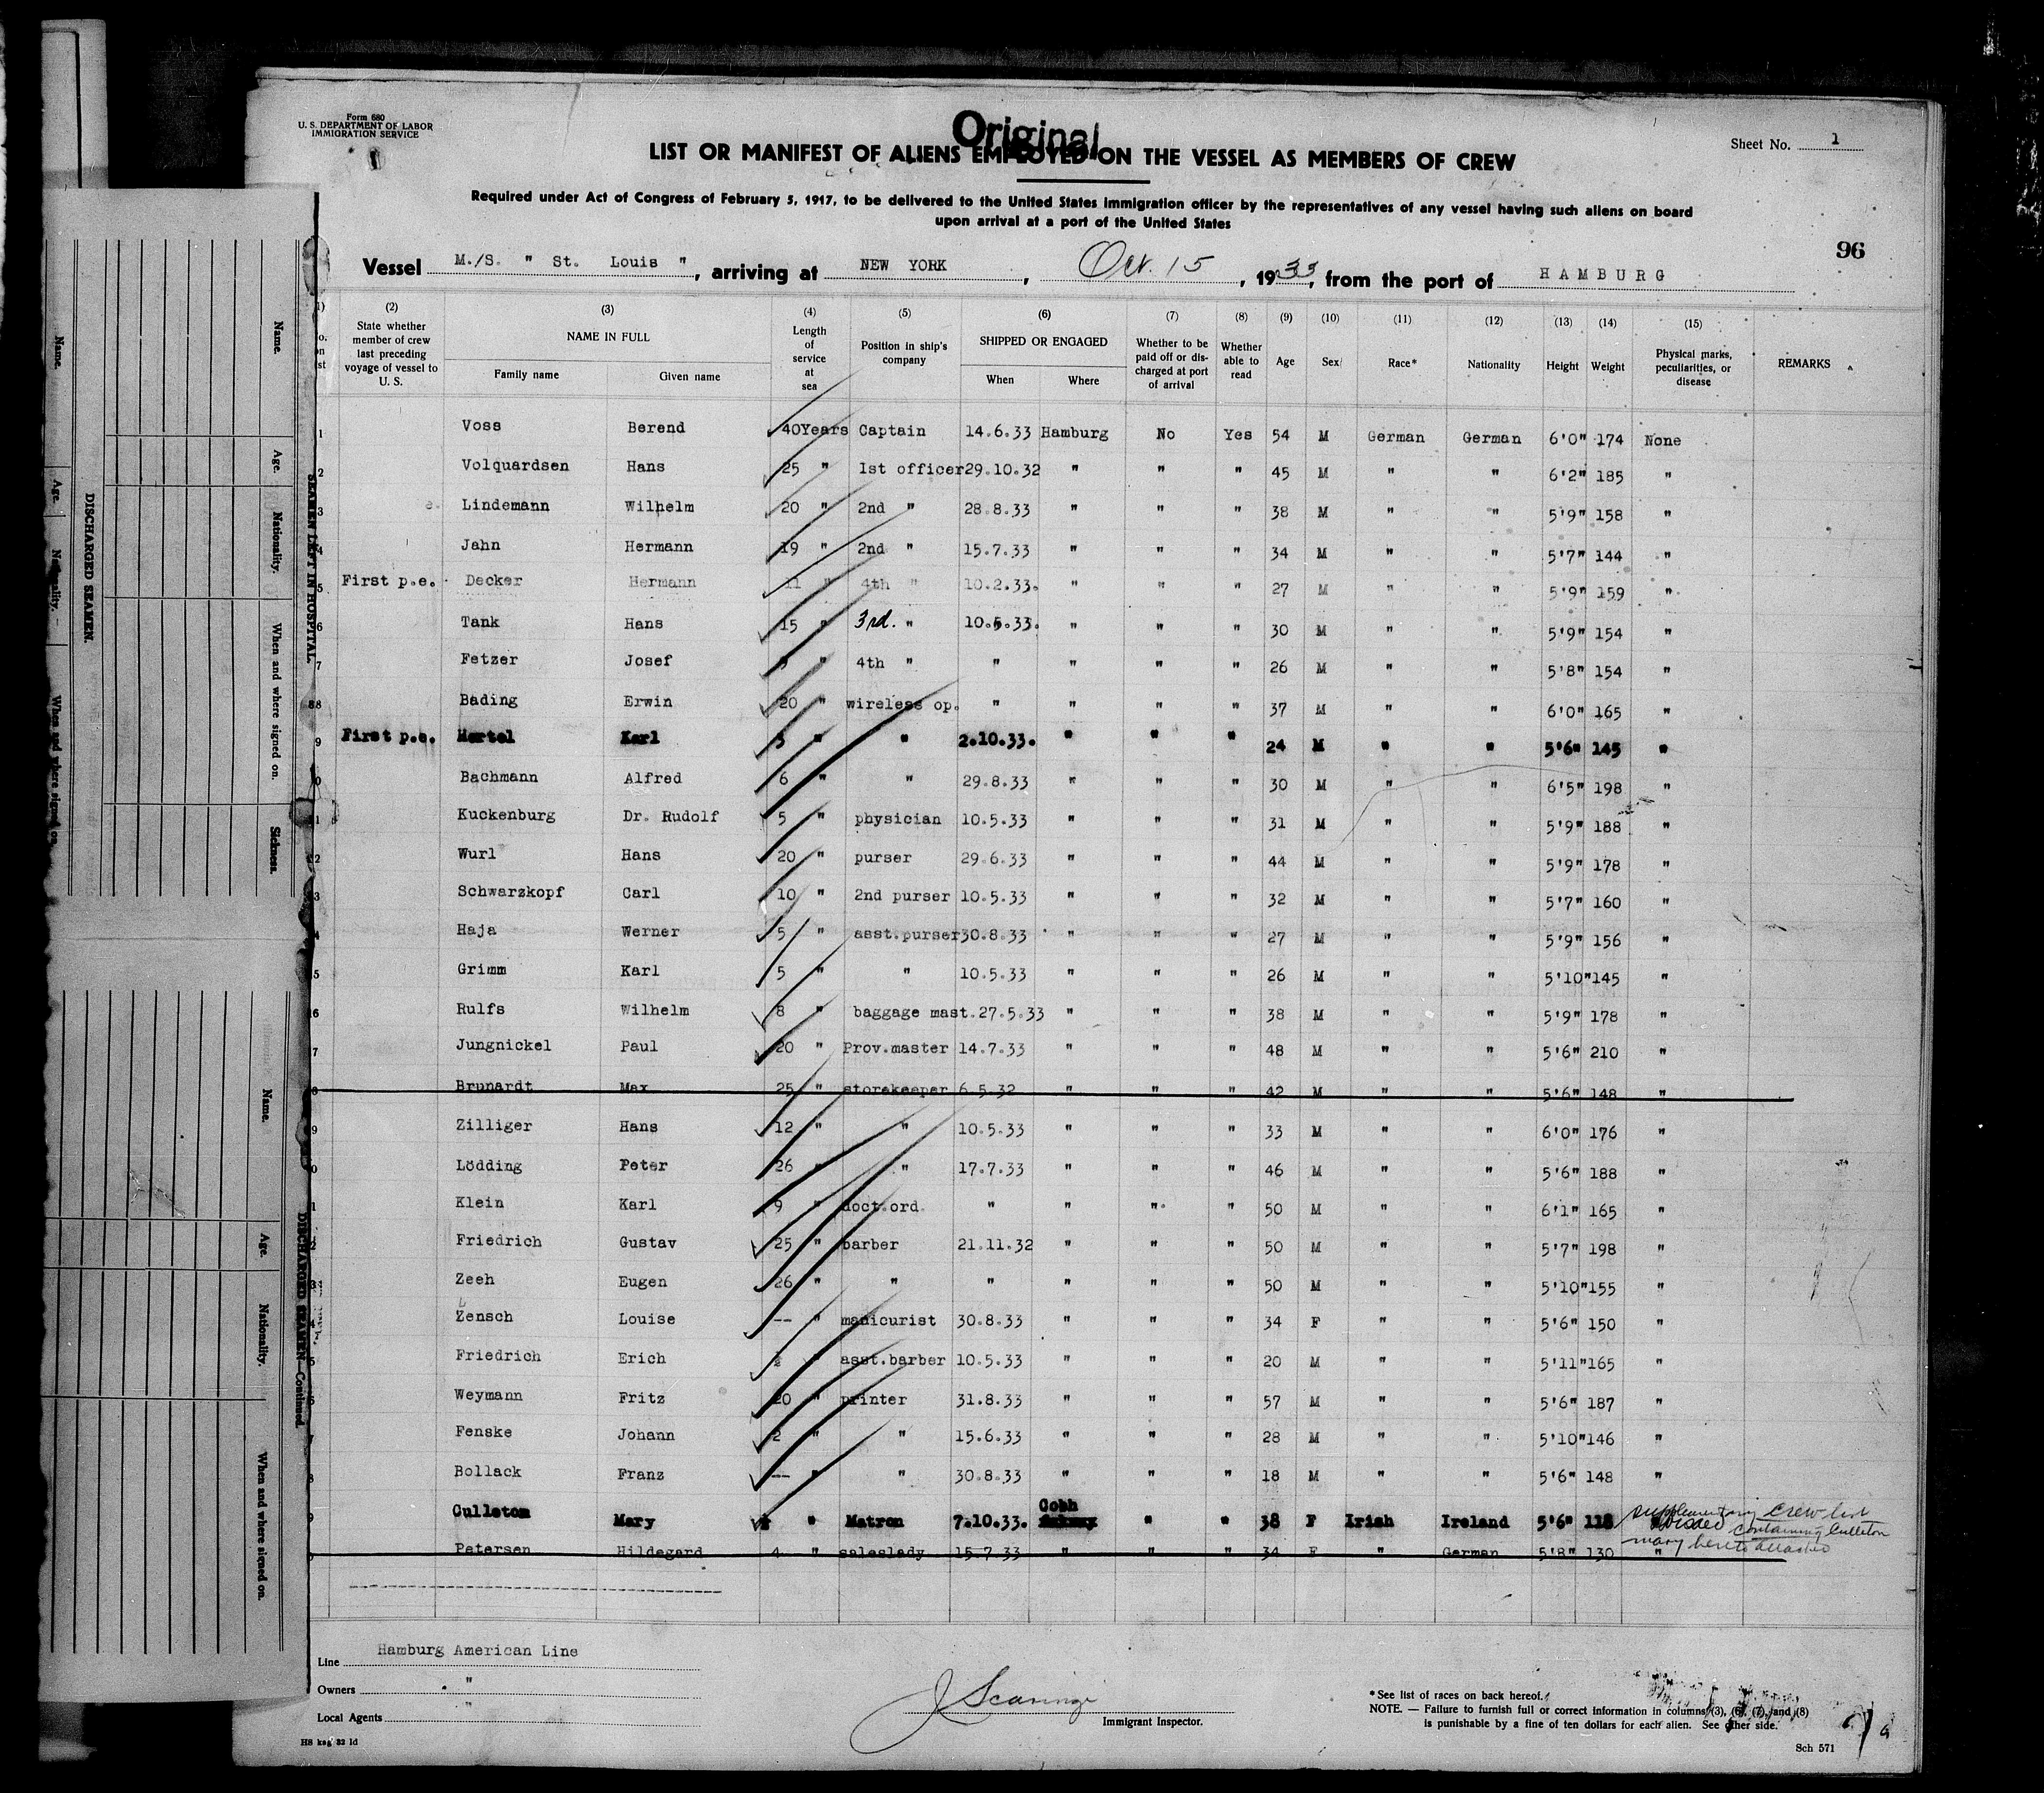 Form 680
U. S. DEPARTMENT OF LABOR
IMMIGRATION SERVICE
Original
LIST OR MANIFEST OF ALIENS EMPLOYED ON THE VESSEL AS MEMBERS OF CREW
Sheet No. 1
Required under Act of Congress of February 5, 1917, to be delivered to the United States immigration officer by the representatives of any vessel having such aliens on board
upon arrival at a port of the United States
96
Vessel M./S. " St. Louis ", arriving at NEW YORK, Oct. 15, 1933, from the port of HAMBURG
(2) State whether member of crew last preceding voyage of vessel to U. S.
(3) NAME IN FULL Family name Given name
(4) Length of service at sea
(5) Position in ship's company
(6) SHIPPED OR ENGAGED When Where
(7) Whether to be paid off or discharged at port of arrival
(8) Whether able to read
(9) Age
(10) Sex
(11) Race*
(12) Nationality
(13) Height
(14) Weight
(15) Physical marks, peculiarities, or disease
REMARKS
1 Voss Berend 40Years Captain 14.6.33 Hamburg No Yes 54 M German German 6'0" 174 None
2 Volquardsen Hans 25 " 1st officer 29.10.32 " " " 45 M " " 6'2" 185 "
3 Lindemann Wilhelm 20 " 2nd " 28.8.33 " " " 38 M " " 5'9" 158 "
4 Jahn Hermann 19 " 2nd " 15.7.33 " " " 34 M " " 5'7" 144 "
5 First p.e. Decker Hermann 11 " 4th " 10.2.33. " " " 27 M " " 5'9" 159 "
6 Tank Hans 15 " 3rd. " 10.5.33. " " " 30 M " " 5'9" 154 "
7 Fetzer Josef " 4th " " " " " 26 M " " 5'8" 154 "
8 Bading Erwin 20 " wireless op. " " " " 37 M " " 6'0" 165 "
9 First p.e. Mertel Karl 3 " " 2.10.33. " " " 24 M " " 5'6" 145 "
0 Bachmann Alfred 6 " " 29.8.33 " " " 30 M " " 6'5" 198 "
1 Kuckenburg Dr. Rudolf 5 " physician 10.5.33 " " " 31 M " " 5'9" 188 "
2 Wurl Hans 20 " purser 29.6.33 " " " 44 M " " 5'9" 178 "
3 Schwarzkopf Carl 10 " 2nd purser 10.5.33 " " " 32 M " " 5'7" 160 "
4 Haja Werner 5 " asst.purser 30.8.33 " " " 27 M " " 5'9" 156 "
5 Grimm Karl 5 " " 10.5.33 " " " 26 M " " 5'10" 145 "
6 Rulfs Wilhelm 8 " baggage mast. 27.5.33 " " " 38 M " " 5'9" 178 "
7 Jungnickel Paul 20 " Prov.master 14.7.33 " " " 48 M " " 5'6" 210 "
8 Brunardt Max 25 " storekeeper 6.5.32 " " " 42 M " " 5'6" 148 "
9 Zilliger Hans 12 " " 10.5.33 " " " 33 M " " 6'0" 176 "
0 Lödding Peter 26 " " 17.7.33 " " " 46 M " " 5'6" 188 "
1 Klein Karl 9 " doct.ord. " " " " 50 M " " 6'1" 165 "
2 Friedrich Gustav 25 " barber 21.11.32 " " " 50 M " " 5'7" 198 "
3 Zeeh Eugen 26 " " " " " " 50 M " " 5'10" 155 "
4 Zensch Louise -- " manicurist 30.8.33 " " " 34 F " " 5'6" 150 "
5 Friedrich Erich ½ " asst.barber 10.5.33 " " " 20 M " " 5'11" 165 "
6 Weymann Fritz 20 " printer 31.8.33 " " " 57 M " " 5'6" 187 "
7 Fenske Johann 2 " " 15.6.33 " " " 28 M " " 5'10" 146 "
8 Bollack Franz -- " " 30.8.33 " " " 18 M " " 5'6" 148 "
9 Culleton Mary " Matron 7.10.33. Cobh " " 38 F Irish Ireland 5'6" 118 supplementary crew list
containing Culleton
Mary hereto attached
0 Petersen Hildegard 4 " saleslady 15.7.33 " " " 34 F " German 5'8" 130 "
Line Hamburg American Line
Owners "
Local Agents "
J Scaringi
Immigrant Inspector.
* See list of races on back hereof.
NOTE. — Failure to furnish full or correct information in columns (3), (6), (7), and (8)
is punishable by a fine of ten dollars for each alien. See other side.
HS kag 32 1d
Sch 571
SEAMEN LEFT IN HOSPITAL.
Name.
Age.
Nationality.
When and where signed on.
Sickness.
DISCHARGED SEAMEN.
Name.
Age.
Nationality.
When and where signed on.
DISCHARGED SEAMEN—Continued.
Name.
Age.
Nationality.
When and where signed on.